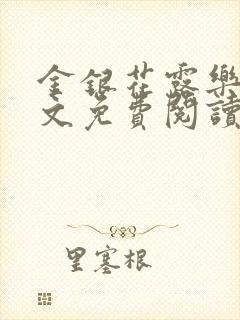 金银花露樂
文免費閱讀
里塞根